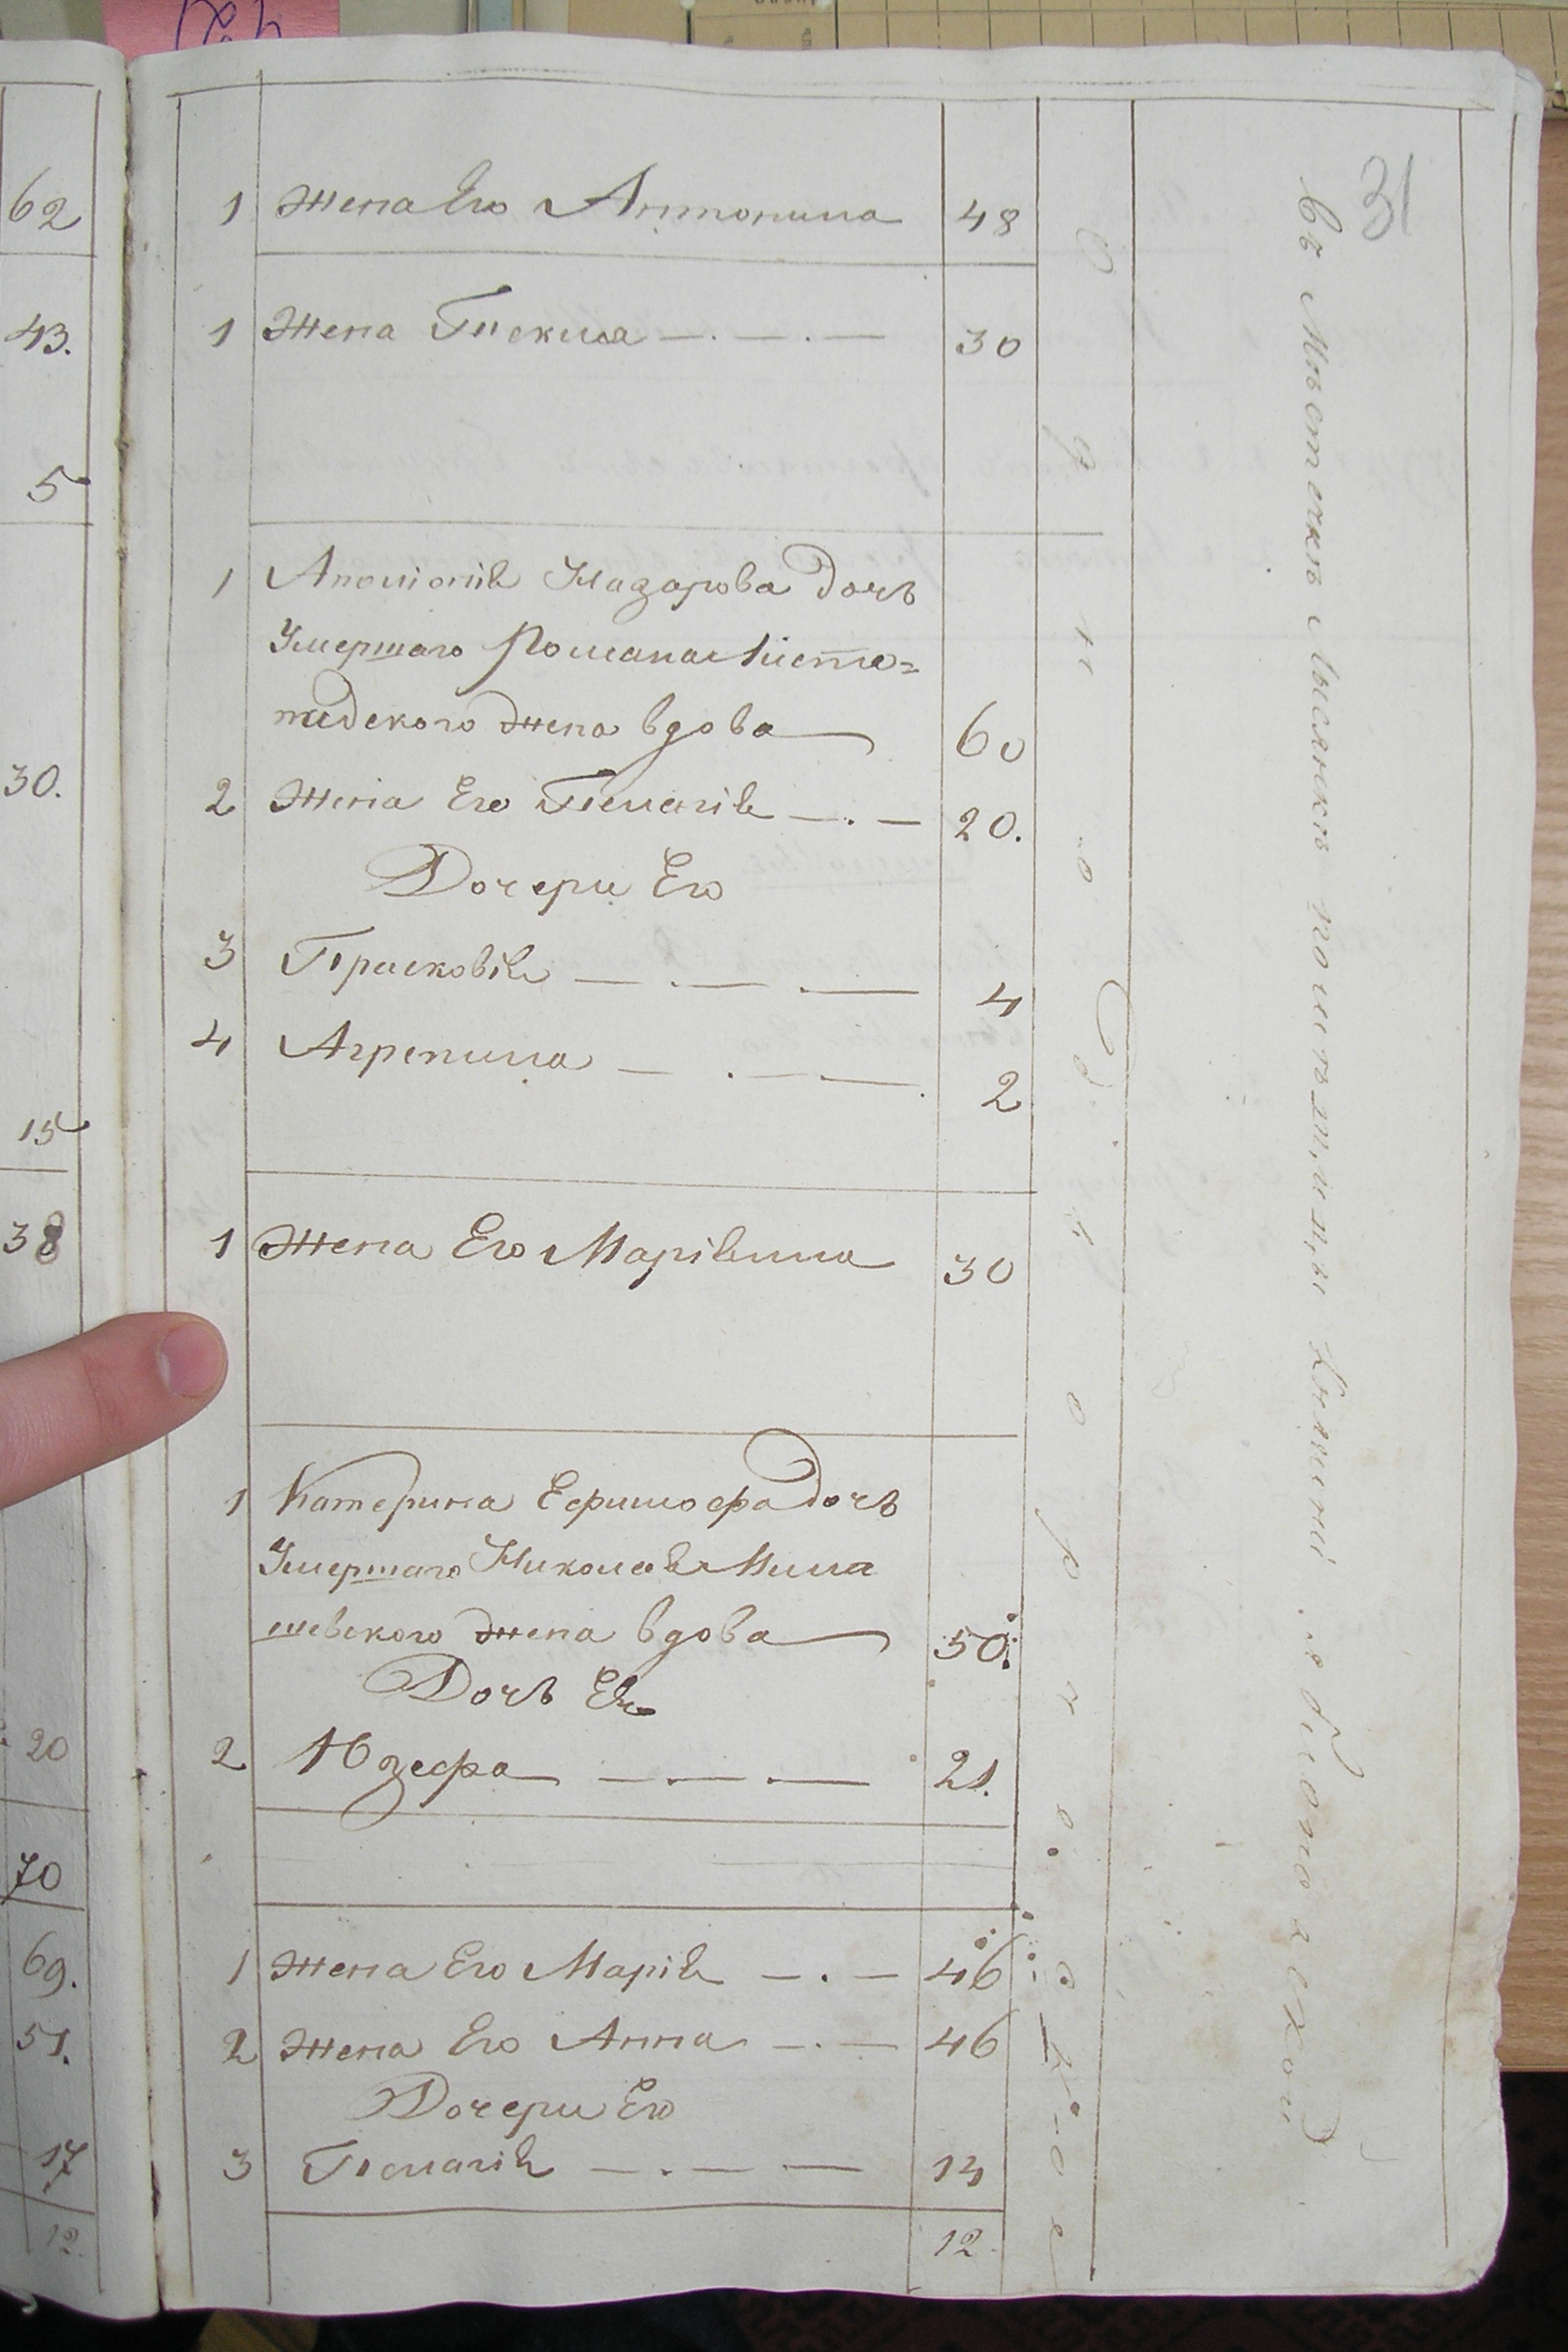 31
62
43.
5
30.
15
38
20
70
69.
51.
17
12.
1 Жена Его Антонина 48
1 Жена Текля 30
1 Аполіонія Назарова дочь
Умершаго Романа
жена вдова 60
2 Жена Его Пелагія 20.
Дочери Его
3 Прасковія 4
4 Агрепина 2
1 Жена Его Маріянна 30
1 Катерина Ефимофа дочь
Умершаго Николая
шевского жена вдова 50
Дочь Ея
2 Юзефа 21.
1 Жена Его Марія 46
2 Жена Его Анна 46
Дочери Его
3 Пелагія 14
12.
О д н о д в о р ч е с к о е
въ Мѣстечкѣ Лысянкѣ